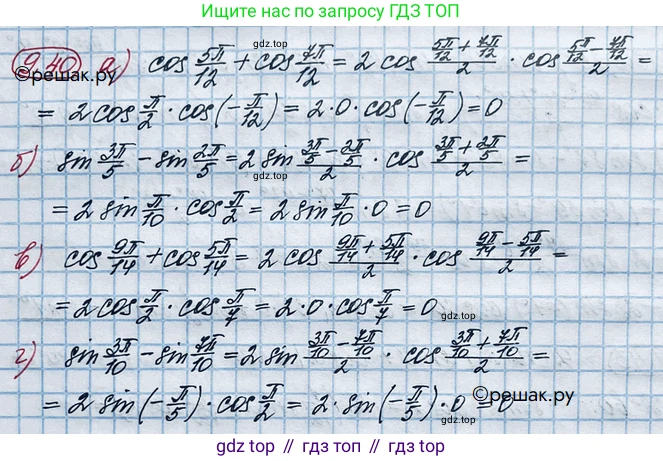 Ищите нас по запросу ГДЗ ТОП
9.40 а) cos 5π/12 + cos 7π/12 = 2 cos (5π/12 + 7π/12)/2 · cos (5π/12 − 7π/12)/2 =
©решак.ру
gdz.top
= 2 cos π/2 · cos(−π/12) = 2·0·cos(−π/12) = 0
б) sin 3π/5 − sin 2π/5 = 2 sin (3π/5 − 2π/5)/2 · cos (3π/5 + 2π/5)/2 =
gdz.top
= 2 sin π/10 · cos π/2 = 2 sin π/10 · 0 = 0
в) cos 9π/14 + cos 5π/14 = 2 cos (9π/14 + 5π/14)/2 · cos (9π/14 − 5π/14)/2 =
= 2 cos π/2 · cos π/7 = 2·0·cos π/7 = 0
gdz.top
г) sin 3π/10 − sin 7π/10 = 2 sin (3π/10 − 7π/10)/2 · cos (3π/10 + 7π/10)/2 =
= 2 sin(−π/5) · cos π/2 = 2·sin(−π/5)·0 = 0
©решак.ру
gdz top // гдз топ // gdz.top